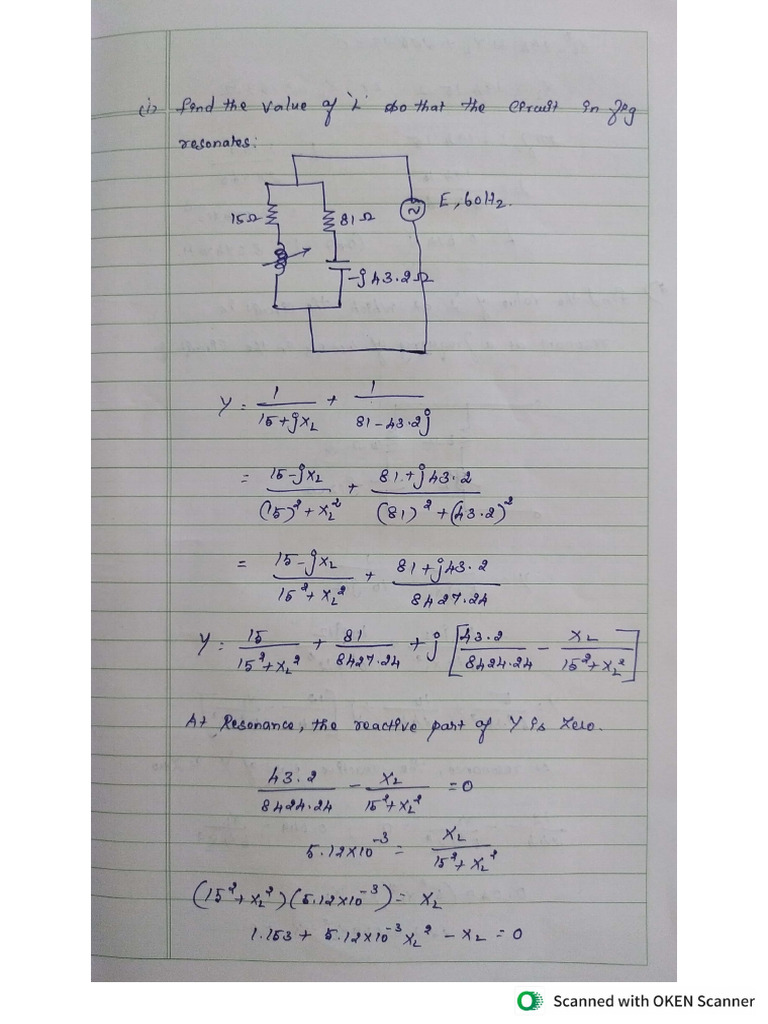 (i) find the value of 'L' so that the circuit in fig
resonates:
15Ω 81Ω E, 60Hz.
-j43.2Ω
Y = 1/(15+jXL) + 1/(81-43.2j)
= (15-jXL)/((15)²+XL²) + (81+j43.2)/((81)²+(43.2)²)
= (15-jXL)/(15²+XL²) + (81+j43.2)/8427.24
Y = 15/(15²+XL²) + 81/8427.24 + j[43.2/8424.24 - XL/(15²+XL²)]
At Resonance, the reactive part of Y is zero.
43.2/8424.24 - XL/(15²+XL²) = 0
5.12×10⁻³ = XL/(15²+XL²)
(15²+XL²)(5.12×10⁻³) = XL
1.153 + 5.12×10⁻³XL² - XL = 0
Scanned with OKEN Scanner